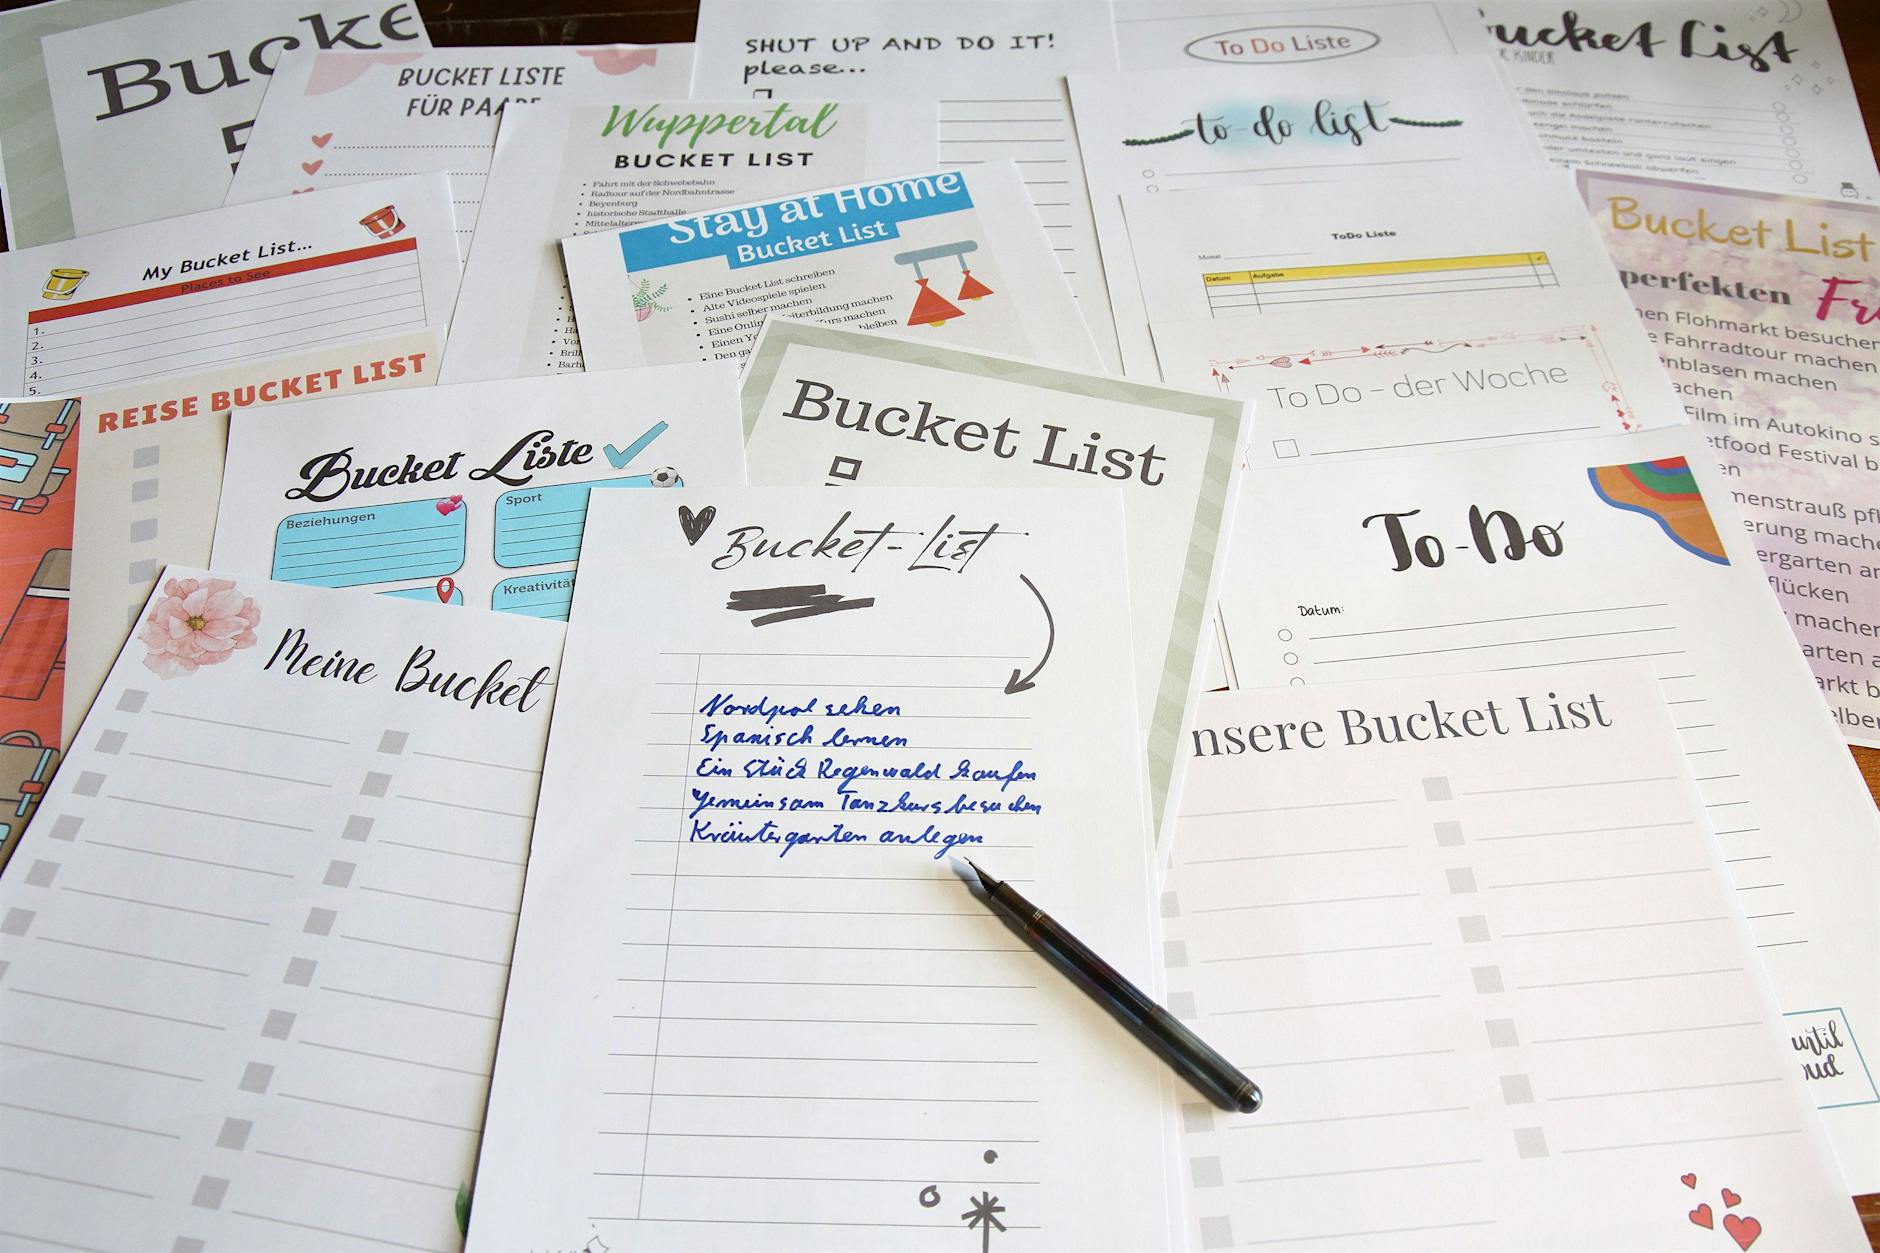 Bucke
BUCKET LISTE
FÜR PAARE
SHUT UP AND DO IT!
please...
To Do Liste
ucket List
KINDER
Wuppertal
BUCKET LIST
Fahrt mit der Schwebebahn
Radtour auf der Nordbahntrasse
Beyenburg
historische Stadthalle
Mittelalter
to-do list
Stay at Home
Bucket List
Eine Bucket List schreiben
Alte Videospiele spielen
Sushi selber machen
Eine Onlin eiterbildung machen
Einen Yo Kurs machen
Den ga bleiben
My Bucket List...
Places to See
1.
2.
3.
4.
5.
ToDo Liste
Monat
Datum Aufgabe
Bucket List
perfekten Fr
en Flohmarkt besuchen
e Fahrradtour machen
enblasen machen
achen
Film im Autokino s
etfood Festival b
en
menstrauß pfl
erung mache
ergarten an
flücken
machen
arten a
arkt b
elber
REISE BUCKET LIST
To Do – der Woche
Bucket Liste
Beziehungen
Sport
Kreativität
Bucket List
To-Do
Datum:
Bucket-List
Nordpol sehen
Spanisch lernen
Ein Stück Regenwald kaufen
Gemeinsam Tanzkurs besuchen
Kräutergarten anlegen
Meine Bucket
nsere Bucket List
until
oud